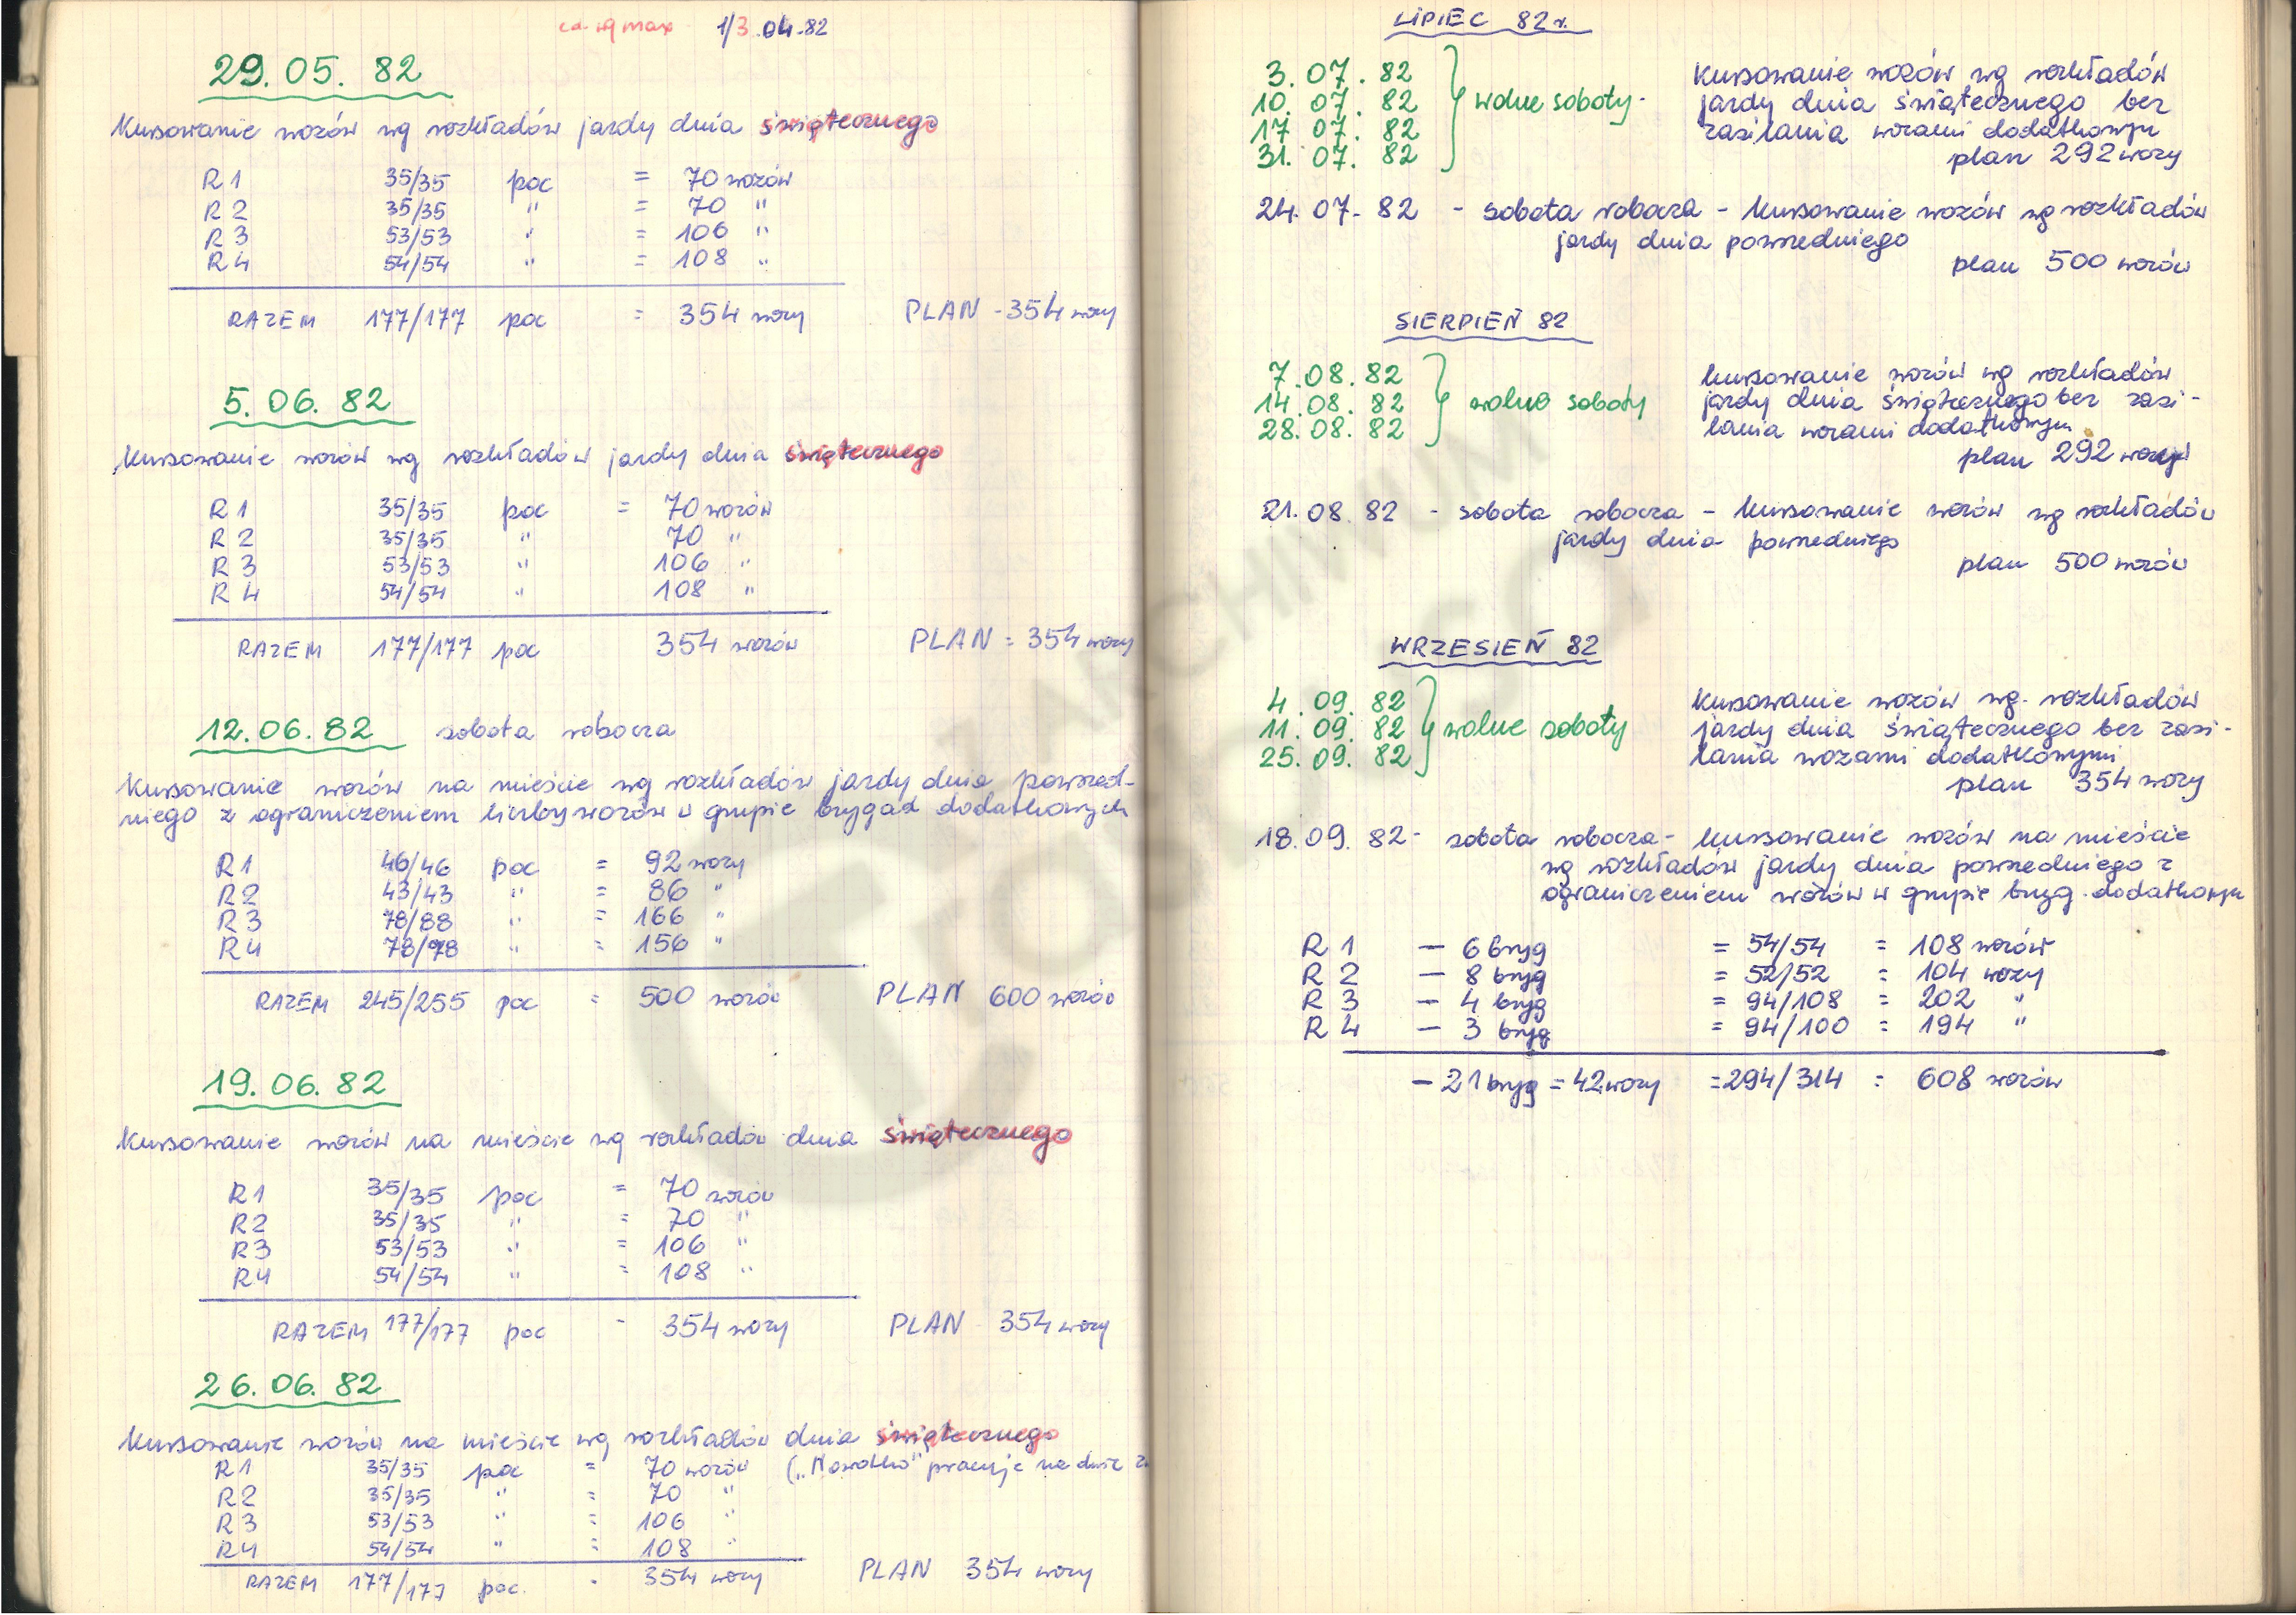 cd. wg max 1/3.04.82
29.05.82
Kursowanie wozów wg rozkładów jazdy dnia świątecznego
R1 35/35 poc = 70 wozów
R2 35/35 " = 70 "
R3 53/53 " = 106 "
R4 54/54 " = 108 "
RAZEM 177/177 poc = 354 wozy PLAN - 354 wozy
5.06.82
Kursowanie wozów wg rozkładów jazdy dnia świątecznego
R1 35/35 poc = 70 wozów
R2 35/35 " 70 "
R3 53/53 " 106 "
R4 54/54 " 108 "
RAZEM 177/177 poc 354 wozów PLAN = 354 wozy
12.06.82 sobota robocza
Kursowanie wozów na mieście wg rozkładów jazdy dnia powszed-
niego z ograniczeniem liczby wozów w grupie brygad dodatkowych
R1 46/46 poc = 92 wozy
R2 43/43 " = 86 "
R3 78/88 " = 166 "
R4 78/78 " = 156 "
RAZEM 245/255 poc = 500 wozów PLAN 600 wozów
19.06.82
Kursowanie wozów na mieście wg rozkładów dnia świątecznego
R1 35/35 poc = 70 wozów
R2 35/35 " = 70 "
R3 53/53 " = 106 "
R4 54/54 " = 108 "
RAZEM 177/177 poc - 354 wozy PLAN 354 wozy
26.06.82
Kursowanie wozów na mieście wg rozkładów dnia świątecznego
R1 35/35 poc = 70 wozów („Nowotko" pracuje na dwie z
R2 35/35 " = 70 "
R3 53/53 " = 106 "
R4 54/54 " = 108 "
RAZEM 177/177 poc. - 354 wozy PLAN 354 wozy
LIPIEC 82 r.
3.07.82
10.07.82
17.07.82
31.07.82
wolne soboty -
Kursowanie wozów wg rozkładów
jazdy dnia świątecznego bez
zasilania wozami dodatkowym
plan 292 wozy
24.07.82 - sobota robocza - kursowanie wozów wg rozkładów
jazdy dnia powszedniego
plan 500 wozów
SIERPIEŃ 82
7.08.82
14.08.82
28.08.82
wolne soboty
kursowanie wozów wg rozkładów
jazdy dnia świątecznego bez zasi-
lania wozami dodatkowym
plan 292 wozy
21.08.82 - sobota robocza - kursowanie wozów wg rozkładów
jazdy dnia powszedniego
plan 500 wozów
WRZESIEŃ 82
4.09.82
11.09.82
25.09.82
wolne soboty
Kursowanie wozów wg. rozkładów
jazdy dnia świątecznego bez zasi-
lania wozami dodatkowymi
plan 354 wozy
18.09.82 - sobota robocza - kursowanie wozów na mieście
wg rozkładów jazdy dnia powszedniego z
ograniczeniem wozów w grupie bryg. dodatkowych
R1 - 6 bryg = 54/54 = 108 wozów
R2 - 8 bryg = 52/52 = 104 wozy
R3 - 4 bryg = 94/108 = 202 "
R4 - 3 bryg = 94/100 = 194 "
- 21 bryg = 42 wozy = 294/314 = 608 wozów